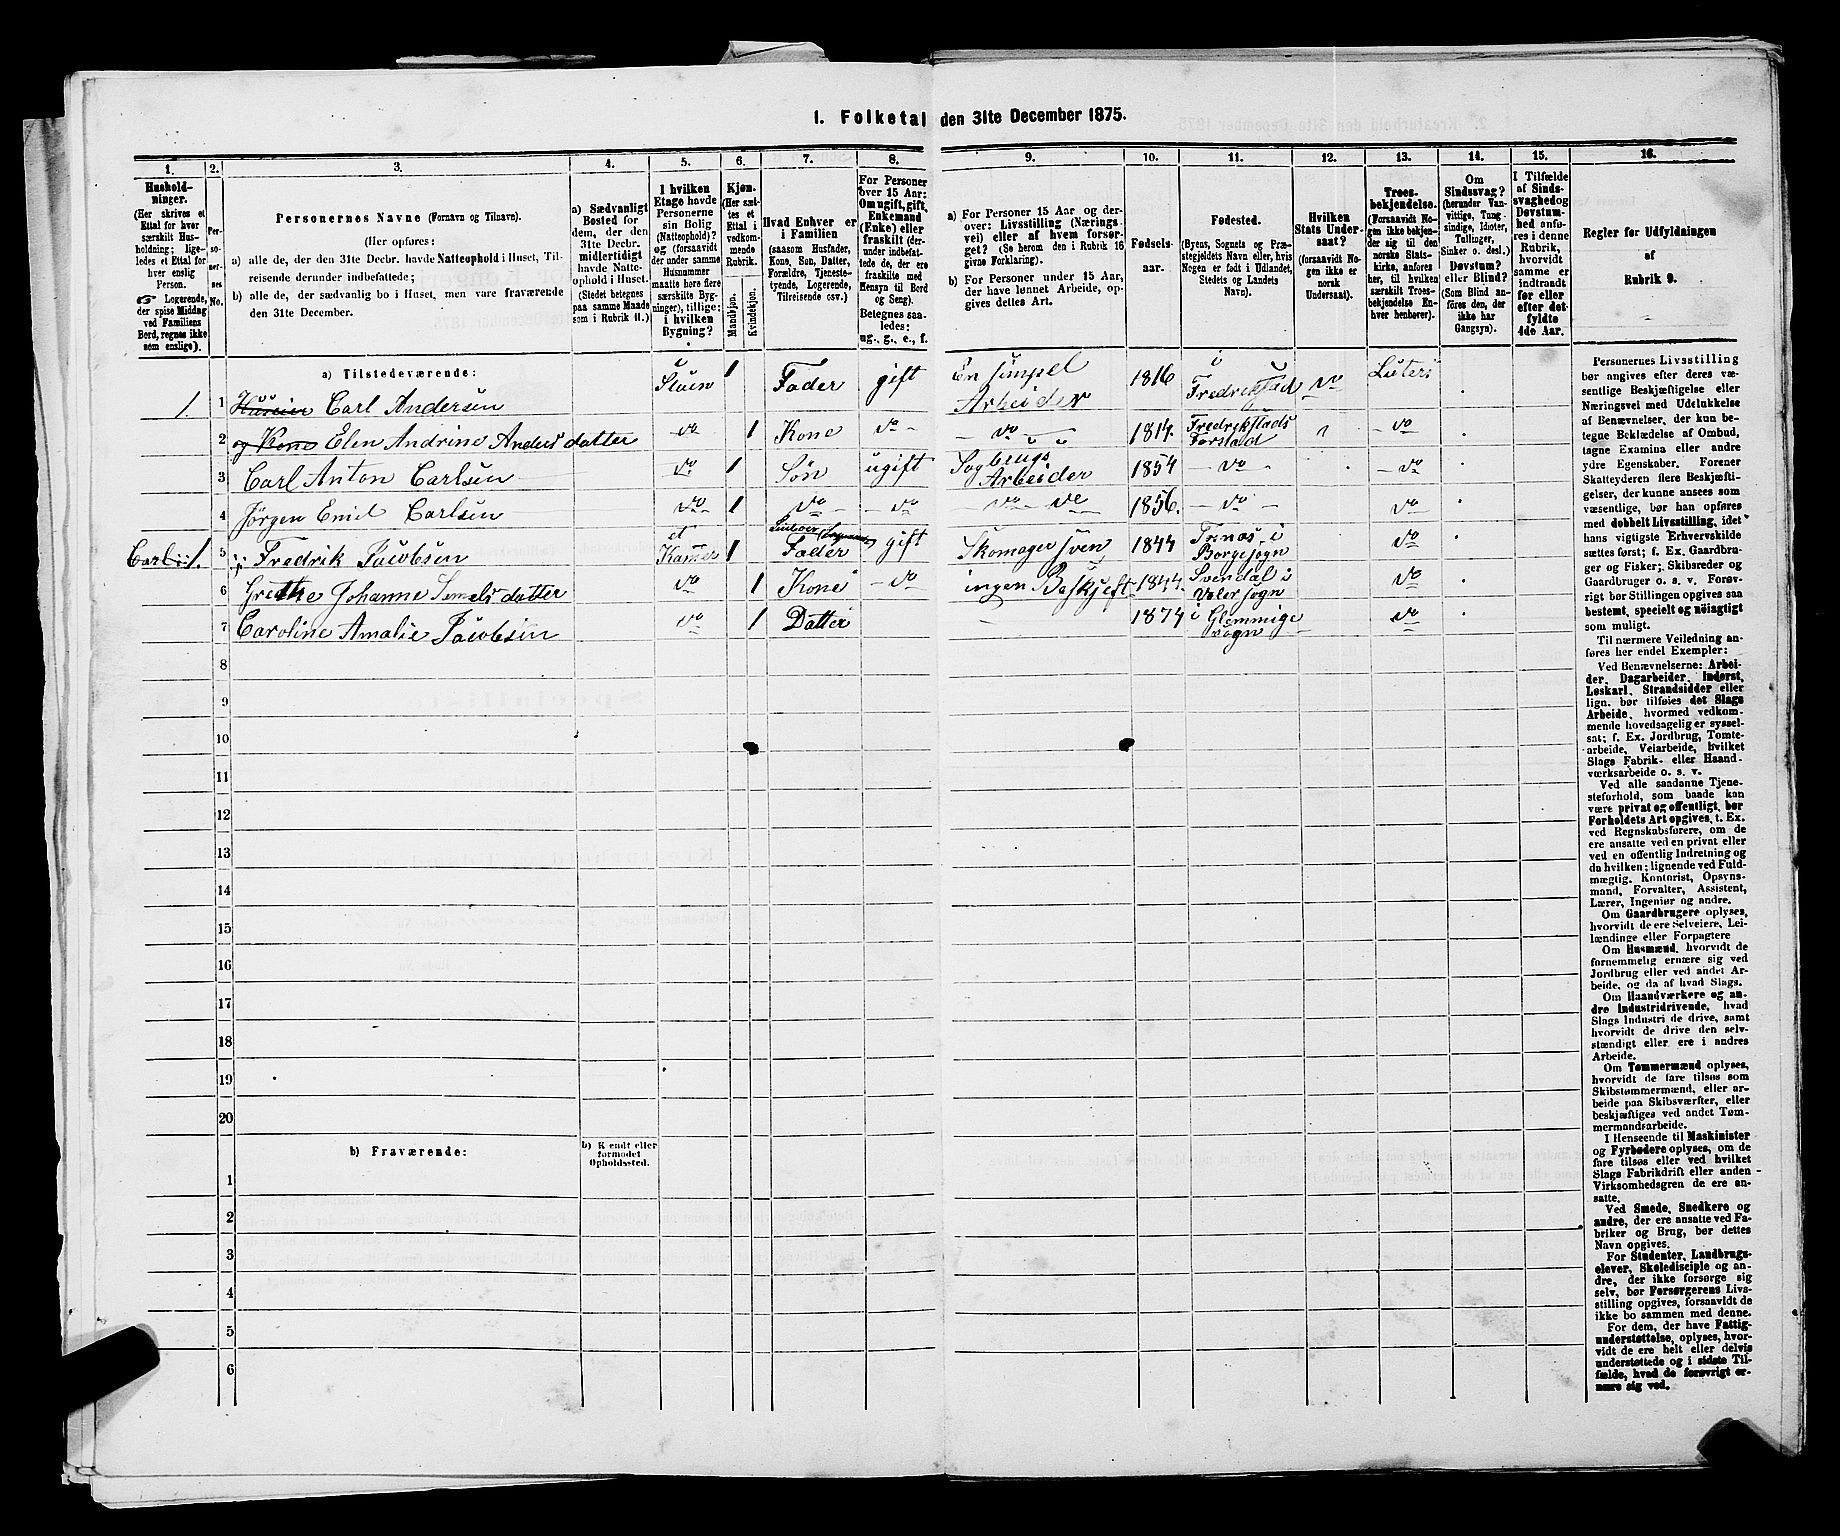 1. Folketal den 31te December 1875.
1.
2.
3.
4.
5.
6.
7.
8.
9.
10.
11.
12.
13.
14.
15.
16.
Hushold-
ninger.
(Her skrives et
Ettal for hver
særskilt Hus-
holdning; lige-
ledes et Ettal for
hver enslig
Person.
☞ Logerende,
der spise Middag
ved Familiens
Bord, regnes ikke
som enslige).
Per-
so-
ner-
nes
No.
Personernes Navne (Fornavn og Tilnavn).
(Her opføres:
a) alle de, der den 31te Decbr. havde Natteophold i Huset, Til-
reisende derunder indbefattede;
b) alle de, der sædvanlig bo i Huset, men vare fraværende
den 31te December.
a) Sædvanligt
Bosted for
dem, der den
31te Decbr.
midlertidigt
havde Natte-
ophold i Huset.
(Stedet betegnes
paa samme Maade
som i Rubrik 11.)
I hvilken
Etage havde
Personerne
sin Bolig
(Natteophold)?
og (forsaavidt
der under samme
Husnummer
maatte høre flere
særskilte Byg-
ninger), tillige:
i hvilken
Bygning?
Kjøn.
(Her sæt-
tes et
Ettal i
vedkom-
mende
Rubrik.
Mandkjøn.
Kvindekjøn.
Hvad Enhver er
i Familien
(saasom Husfader,
Kone, Søn, Datter,
Forældre, Tjeneste-
tyende, Logerende,
Tilreisende osv.)
For Personer
over 15 Aar:
Om ugift, gift,
Enkemand
(Enke) eller
fraskilt (der-
under indbefat-
tede de, der ere
fraskilte med
Hensyn til Bord
og Seng).
Betegnes saa-
ledes:
ug., g., e., f.
a) For Personer 15 Aar og der-
over: Livsstilling (Nærings-
vei) eller af hvem forsør-
get? (Se herom den i Rubrik 16
givne Forklaring).
b) For Personer under 15 Aar,
der have lønnet Arbeide, op-
gives dettes Art.
Fødsels-
aar.
Fødested.
(Byens, Sognets og Præ-
stegjeldets Navn eller, hvis
Nogen er født i Udlandet,
Stedets og Landets
Navn).
Hvilken
Stats Under-
saat?
(forsaavidt No-
gen ikke er
norsk
Undersaat).
Troes-
bekjendelse.
(Forsaavidt No-
gen ikke bekjen-
der sig til den
norske Stats-
kirke, anføres
her, til hvilken
særskilt Troes-
bekjendelse En-
hver henhører).
Om
Sindssvag?
(herunder Van-
vittige, Tung-
sindige, Idioter,
Tullinger,
Sinker o. desl.)
Døvstum?
eller Blind?
(Som Blind an-
føres den, der
ikke har
Gangsyn).
I Tilfælde
af Sinds-
svaghed og
Døvstum-
hed anfø-
res i denne
Rubrik,
hvorvidt
samme er
indtraadt
før eller
efter det
fyldte
4de Aar.
Regler for Udfyldningen
af
Rubrik 9.
a) Tilstedeværende:
1. 1 Huseier Carl Andersen Stuen 1 Fader gift En simpel Arbeider 1816 i Fredrikstad do Luters
2 og Kone Elen Andrine Anders datter do 1 Kone do do 1814. Fredrikstads Forstad do
3 Carl Anton Carlsen do 1 Søn ugift Sagbrugs Arbeider 1854 do do
4 Jørgen Emil Carlsen do 1 do do do do 1856. do do
Carl 1. 5 Fredrik Jacobsen et Kamer 1 Fader gift Skomager sven 1844 i Borgesogn do
6 Grethe Johanne datter do 1 Kone do ingen Beskjeft 1844. Svendal i Valer sogn do
7 Caroline Amalie Jacobsen do 1 Datter 1874 i Glemmige sogn do
8
9
10
11
12
13
14
15
16
17
18
19
20
b) Fraværende:
b) Kjendt eller
formodet
Opholdssted.
1
2
3
4
5
6
Personernes Livsstilling
bør angives efter deres væ-
sentlige Beskjæftigelse eller
Næringsvei med Udelukkelse
af Benævnelser, der kun be-
tegne Beklædelse af Ombud,
tagne Examina eller andre
ydre Egenskaber. Forener
Skatteyderen flere Beskjæfti-
gelser, der kunne ansees som
væsentlige, bør han opføres
med dobbelt Livsstilling, idet
hans vigtigste Erhvervskilde
sættes først; f. Ex. Gaardbru-
ger og Fisker; Skibsreder og
Gaardbruger o. s. v. Forøv-
rigt bør Stillingen opgives saa
bestemt, specielt og nøiagtigt
som muligt.
Til nærmere Veiledning an-
føres her endel Exempler:
Ved Benævnelserne: Arbei-
der, Dagarbeider, Inderst,
Løskarl, Strandsidder eller
lign. bør tilføies det Slags
Arbeide, hvormed vedkom-
mende hovedsagelig er syssel-
sat; f. Ex. Jordbrug, Tomte-
arbeide, Veiarbeide, hvilket
Slags Fabrik- eller Haand-
værksarbeide o. s. v.
Ved alle saadanne Tjene-
steforhold, som baade kan
være privat og offentligt, bør
Forholdets Art opgives, t. Ex.
ved Regnskabsførere, om de
ere ansatte ved en privat eller
ved en offentlig Indretning og
da hvilken; lignende ved Fuld-
mægtig, Kontorist, Opsyns-
mand, Forvalter, Assistent,
Lærer, Ingeniør og andre.
Om Gaardbrugere oplyses,
hvorvidt de ere Selveiere, Lei-
lændinge eller Forpagtere
Om Husmænd, hvorvidt de
fornemmelig ernære sig ved
Jordbrug eller ved andet Ar-
beide, og da af hvad Slags.
Om Haandværkere og an-
dre Industridrivende, hvad
Slags Industri de drive, samt
hvorvidt de drive den selv-
stændigt eller ere i andres
Arbeide.
Om Tømmermænd oplyses,
hvorvidt de fare tilsøs som
Skibstømmermænd, eller ar-
beide paa Skibsværfter, eller
beskjæftiges ved andet Tøm-
mermandsarbeide.
I Henseende til Maskinister
og Fyrbødere oplyses, om de
fare tilsøs eller ved hvilket
Slags Fabrikdrift eller anden
Virksomhedsgren de ere an-
satte.
Ved Smede, Snedkere og
andre, der ere ansatte ved Fa-
briker og Brug, bør dettes
Navn opgives.
For Studenter, Landbrugs-
elever, Skoledisciple og an-
dre, der ikke forsørge sig
selv, bør Forsørgerens Livs-
stilling opgives, forsaavidt de
ikke bo sammen med denne.
For dem, der have Fattig-
understøttelse, oplyses, hvor-
vidt de ere helt eller delvis
understøttede og i sidste Til-
fælde, hvad de forøvrigt er-
nære sig ved.